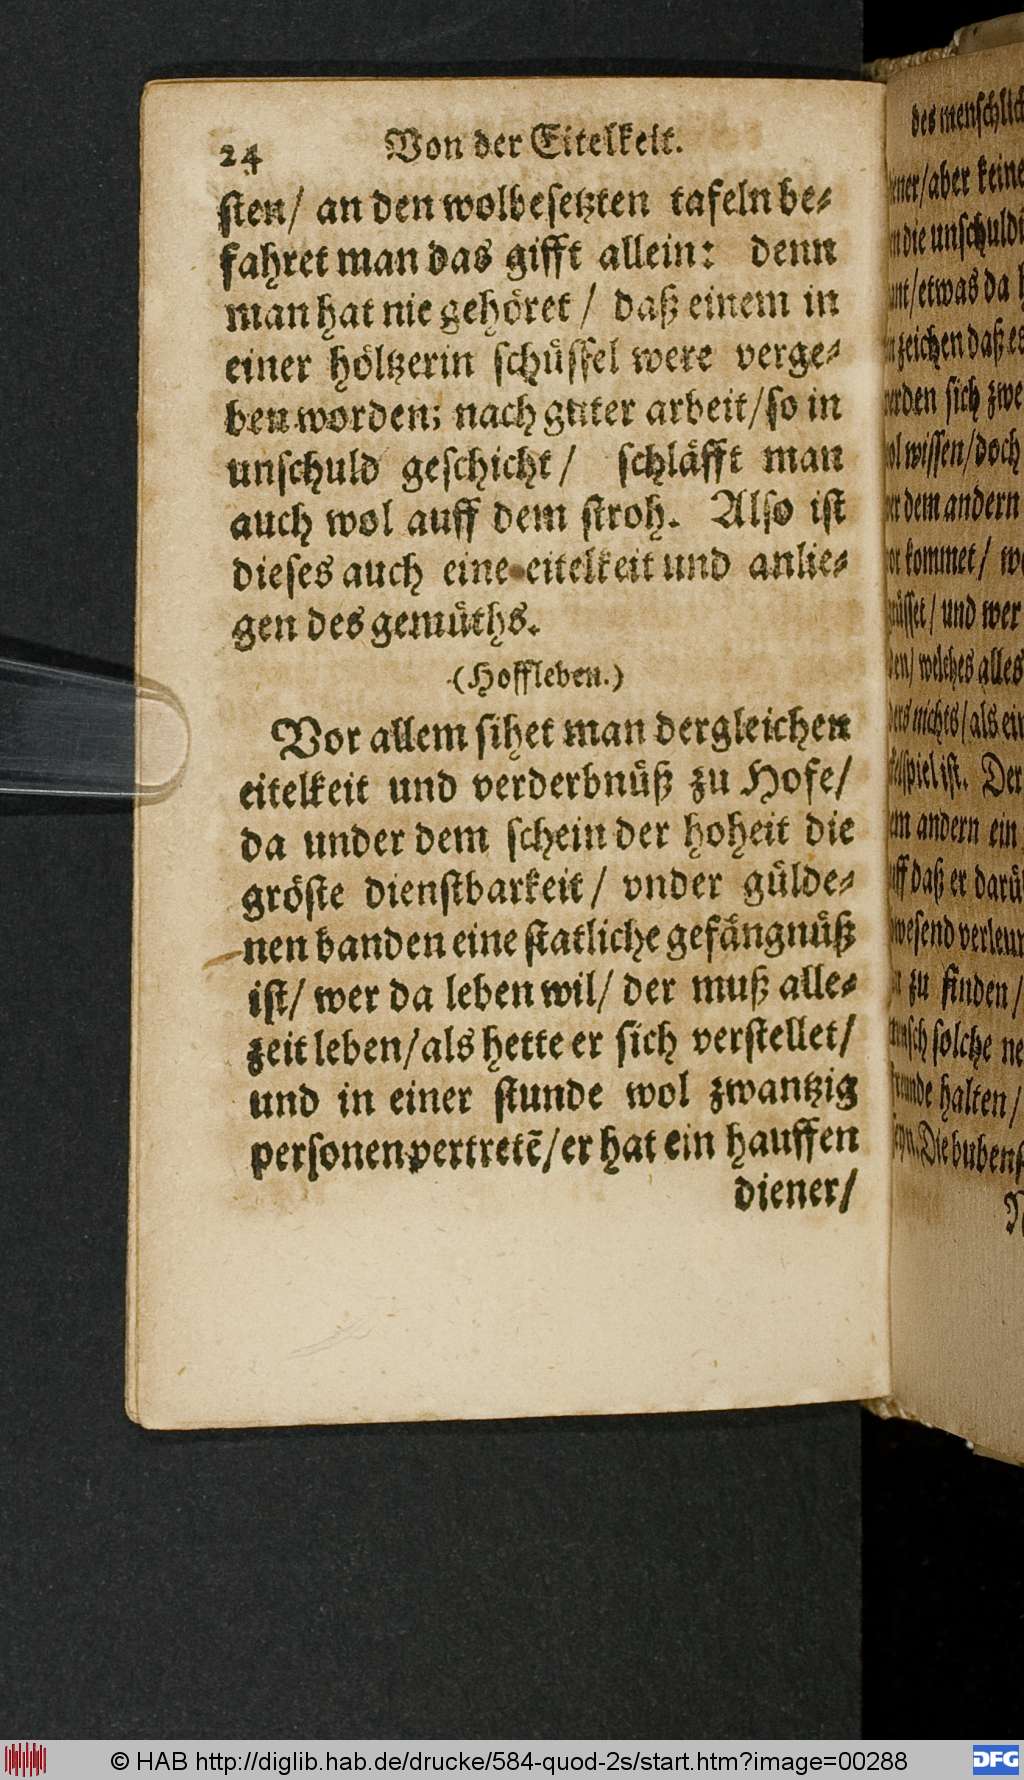 24 Von der Eitelkeit.
sten/ an den wolbesetzten tafeln be-
fahret man das gifft allein: denn
man hat nie gehöret / daß einem in
einer höltzerin schüssel were verge-
ben worden; nach guter arbeit/so in
unschuld geschicht / schläfft man
auch wol auff dem stroh. Also ist
dieses auch eine eitelkeit und anlie-
gen des gemüths.
(Hoffleben.)
Vor allem sihet man dergleichen
eitelkeit und verderbnüß zu Hofe/
da under dem schein der hoheit die
gröste dienstbarkeit/ vnder gülde-
nen banden eine statliche gefängnüß
ist/ wer da leben wil/ der muß alle-
zeit leben/als hette er sich verstellet/
und in einer stunde wol zwantzig
personen pertretē/er hat ein hauffen
diener/
des menschlich
ener/aber keine
die unschuldi
/etwas da
zeichen daß es
rden sich zwe
ol wissen/doch
er dem andern
or kommet/
üsset/ und wer
welches alles
nichts/als ein
spiel ist. Der
em andern ein
uff daß er darü
wesend verleum
zu finden/
nsch solche ne
freunde halten/
Die bubens
© HAB http://diglib.hab.de/drucke/584-quod-2s/start.htm?image=00288
DFG